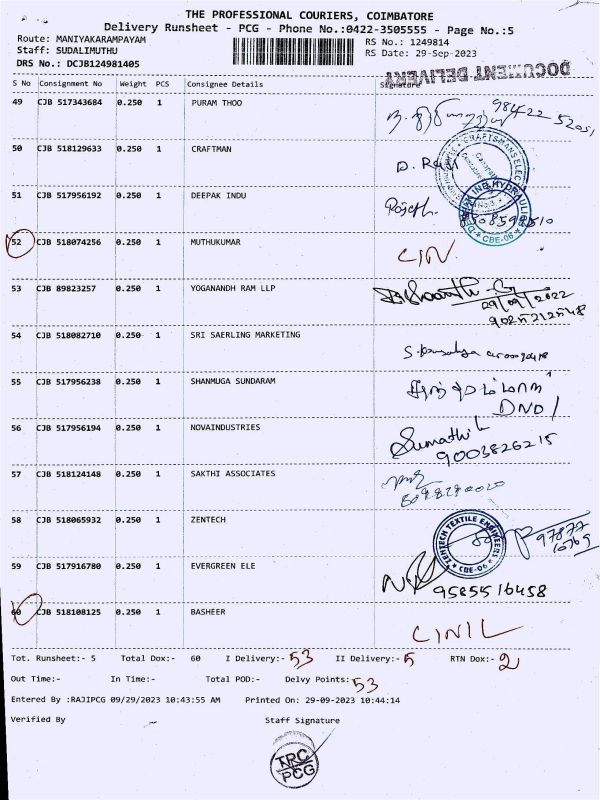 THE PROFESSIONAL COURIERS, COIMBATORE
Delivery Runsheet - PCG - Phone No.:0422-3505555 - Page No.:5
Route: MANIYAKARAMPAYAM
RS No.: 1249814
Staff: SUDALIMUTHU
RS Date: 29-Sep-2023
DRS No.: DCJB124981405
DOCUMENT DELIVERY
S No Consignment No Weight PCS Consignee Details Signature
49 CJB 517343684 0.250 1 PURAM THOO 98422 52051
50 CJB 518129633 0.250 1 CRAFTMAN D. Raji
51 CJB 517956192 0.250 1 DEEPAK INDU Rajesh
52 CJB 518074256 0.250 1 MUTHUKUMAR CIN
53 CJB 89823257 0.250 1 YOGANANDH RAM LLP
29/09/2022
9025212548
54 CJB 518082710 0.250 1 SRI SAERLING MARKETING
55 CJB 517956238 0.250 1 SHANMUGA SUNDARAM
DND
56 CJB 517956194 0.250 1 NOVAINDUSTRIES Sumathi
9003826215
57 CJB 518124148 0.250 1 SAKTHI ASSOCIATES
58 CJB 518065932 0.250 1 ZENTECH
TENTECH TEXTILE ENGINEERS
CBE-06
97877
59 CJB 517916780 0.250 1 EVERGREEN ELE
9585516458
60 CJB 518108125 0.250 1 BASHEER CINIL
Tot. Runsheet:- 5 Total Dox:- 60 I Delivery:- 53 II Delivery:- 5 RTN Dox:- 2
Out Time:- In Time:- Total POD:- Delvy Points: 53
Entered By :RAJIPCG 09/29/2023 10:43:55 AM Printed On: 29-09-2023 10:44:14
Verified By Staff Signature
TRC
PCG